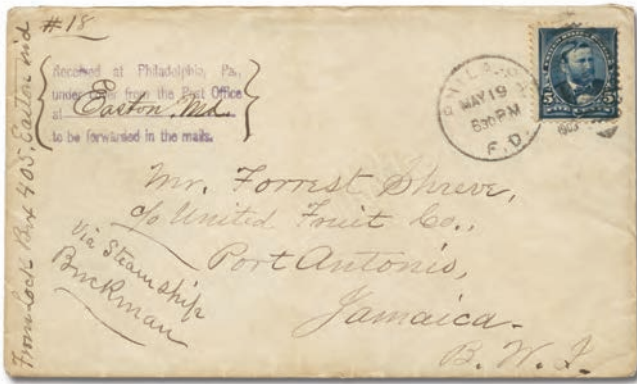 #18
From Lock Box 405, Easton Md
Received at Philadelphia, Pa.,
under cover from the Post Office
at Easton, Md.
to be forwarded in the mails.
PHILA.
MAY 19
630 PM
F. D.
5 5
Mr. Forrest Shreve,
c/o United Fruit Co.,
Port Antonio,
Jamaica-
B. W. I.
Via Steamship
Buckman